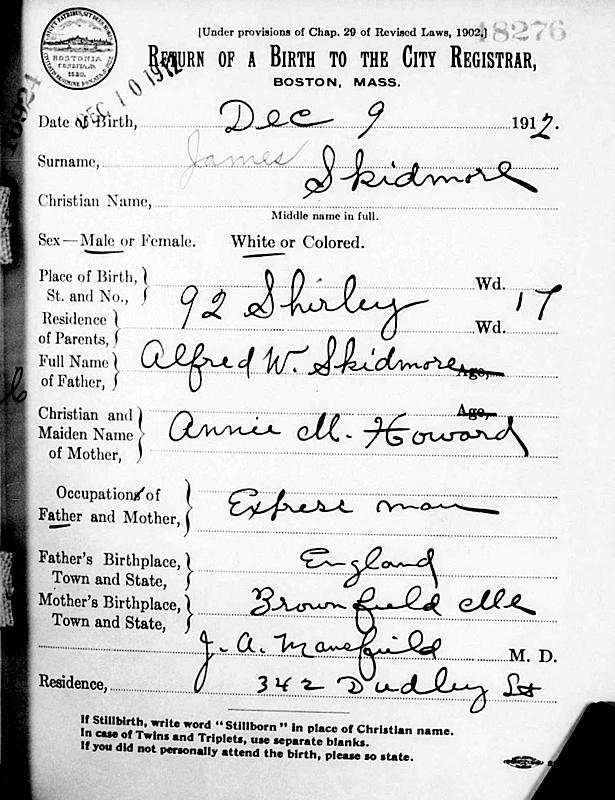 [Under provisions of Chap. 29 of Revised Laws, 1902.] 18276
RETURN OF A BIRTH TO THE CITY REGISTRAR,
BOSTON, MASS.
BOSTONIA
CONDITA A.D.
1630.
DEC 10 1912
Date of Birth, Dec 9 1912.
Surname, James Skidmore
Christian Name,
Middle name in full.
Sex—Male or Female. White or Colored.
Place of Birth, St. and No., 92 Shirley Wd. 17
Residence of Parents, Wd.
Full Name of Father, Alfred W. Skidmore Age,
Christian and Maiden Name of Mother, Annie M. Howard Age,
Occupations of Father and Mother, Express man
Father's Birthplace, Town and State, England
Mother's Birthplace, Town and State, Brownfield Me
J. A. Mansfield M. D.
Residence, 342 Dudley St
If Stillbirth, write word "Stillborn" in place of Christian name.
In case of Twins and Triplets, use separate blanks.
If you did not personally attend the birth, please so state.